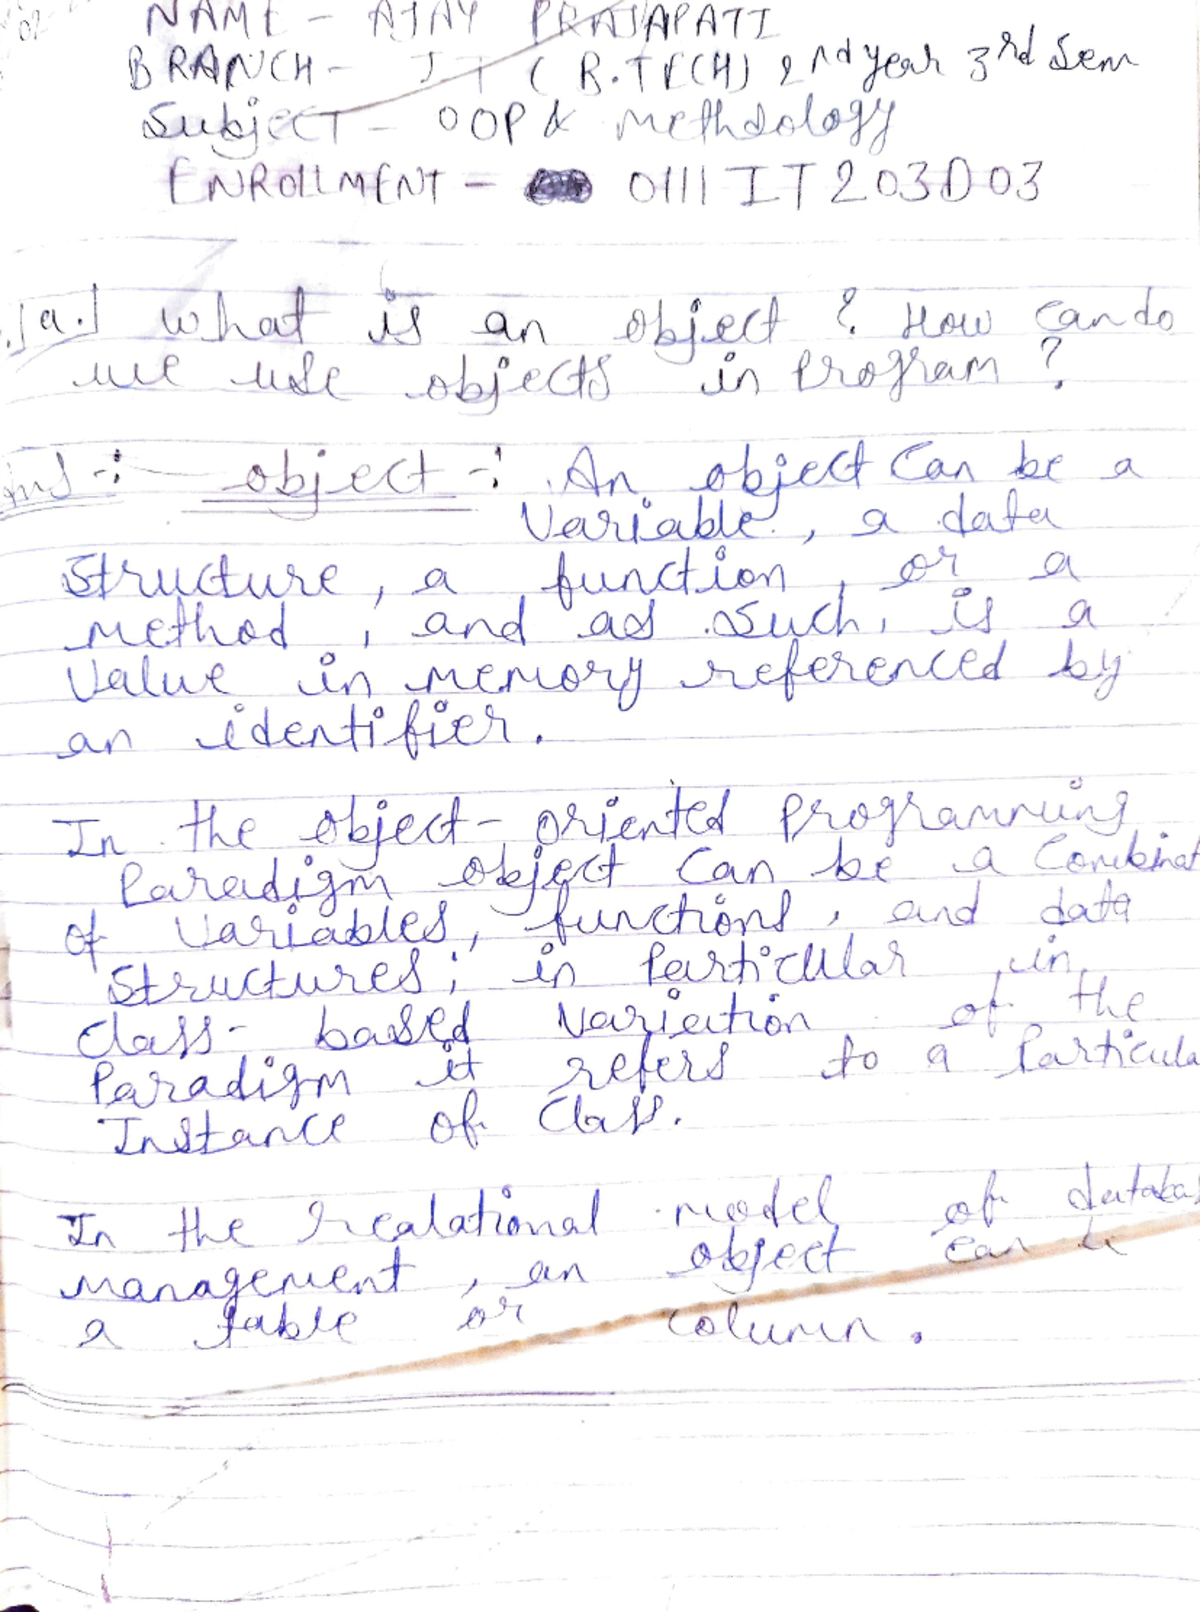 02
NAME - AJAY PRAJAPATI
BRANCH - IT (B.TECH) 2nd year 3rd Sem
Subject - OOP & Methdology
ENROLLMENT - 0111IT203D03
1a.] What is an object ? How can do
we use objects in Program ?
Ans -: object -: An object can be a
Variable , a data
Structure , a function , or a
method , and as such, is a
Value in memory referenced by
an identifier.
In the object - oriented Programming
Paradigm object can be a Combinat
of Variables, functions , and data
Structures; in Particular in
Class - based Variation of the
Paradigm it refers to a Particula
Instance of Class.
In the realational model of databas
management , an object can be
a table or column .